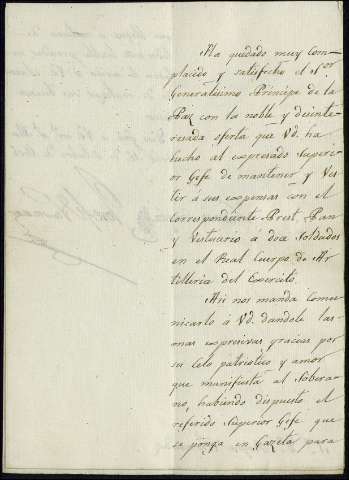 Ha quedado muy com-
placido y satisfecho el S.or
Generalisimo Principe de la
Paz con la noble y desinte-
resada oferta que Vd. ha
hecho al expresado Superi-
or Gefe de mantener y ves-
tir á sus expensas con el
correspondiente Prest, Pan
y Vestuario á dos Soldados
en el Real Cuerpo de Ar-
tilleria del Exercito.
Asi nos manda comu-
nicarlo á Vd. dandole las
mas expresivas gracias por
su celo patriotico y amor
que manifiesta al Sobera-
no, habiendo dispuesto el
referido Superior Gefe que
se ponga en Gazeta para